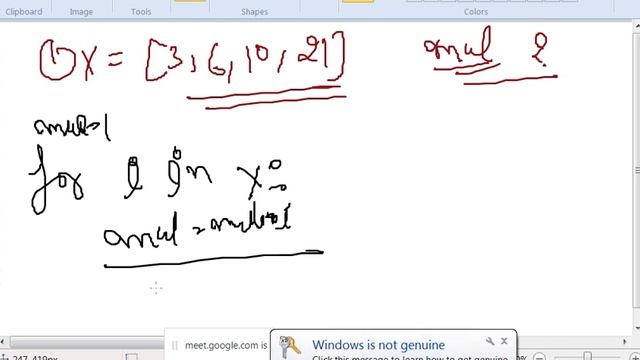 Clipboard Image Tools Shapes Colors
① x = [3, 6, 10, 21] mul ?
mul=1
for i in x:
mul = mul*i
247, 419px
meet.google.com is
Windows is not genuine
Click this message to learn how to get genuine